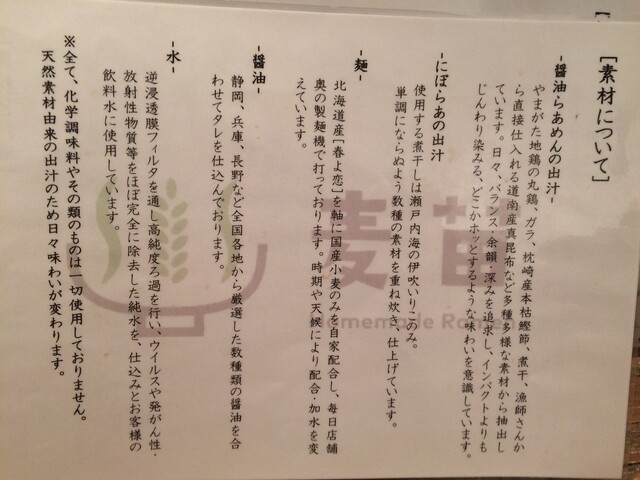 ［素材について］
-醤油らあめんの出汁-
やまがた地鶏の丸鶏、ガラ、枕崎産本枯鰹節、煮干、漁師さんか
ら直接仕入れる道南産真昆布など多種多様な素材から抽出し
ています。日々、バランス・余韻・深みを追求し、インパクトよりも
じんわり染みる、どこかホッとするような味わいを意識しています。
-にぼらあの出汁
使用する煮干しは瀬戸内海の伊吹いりこのみ。
単調にならぬよう数種の素材を重ね炊き、仕上げています。
-麺-
北海道産［春よ恋］を軸に国産小麦のみを自家配合し、毎日店舗
奥の製麺機で打っております。時期や天候により配合・加水を変
えています。
-醤油-
静岡、兵庫、長野など全国各地から厳選した数種類の醤油を合
わせてタレを仕込んでおります。
-水-
逆浸透膜フィルタを通し高純度ろ過を行い、ウイルスや発がん性・
放射性物質等をほぼ完全に除去した純水を、仕込みとお客様の
飲料水に使用しています。
※全て、化学調味料やその類のものは一切使用しておりません。
天然素材由来の出汁のため日々味わいが変わります。
麦苗
Homemade Ramen